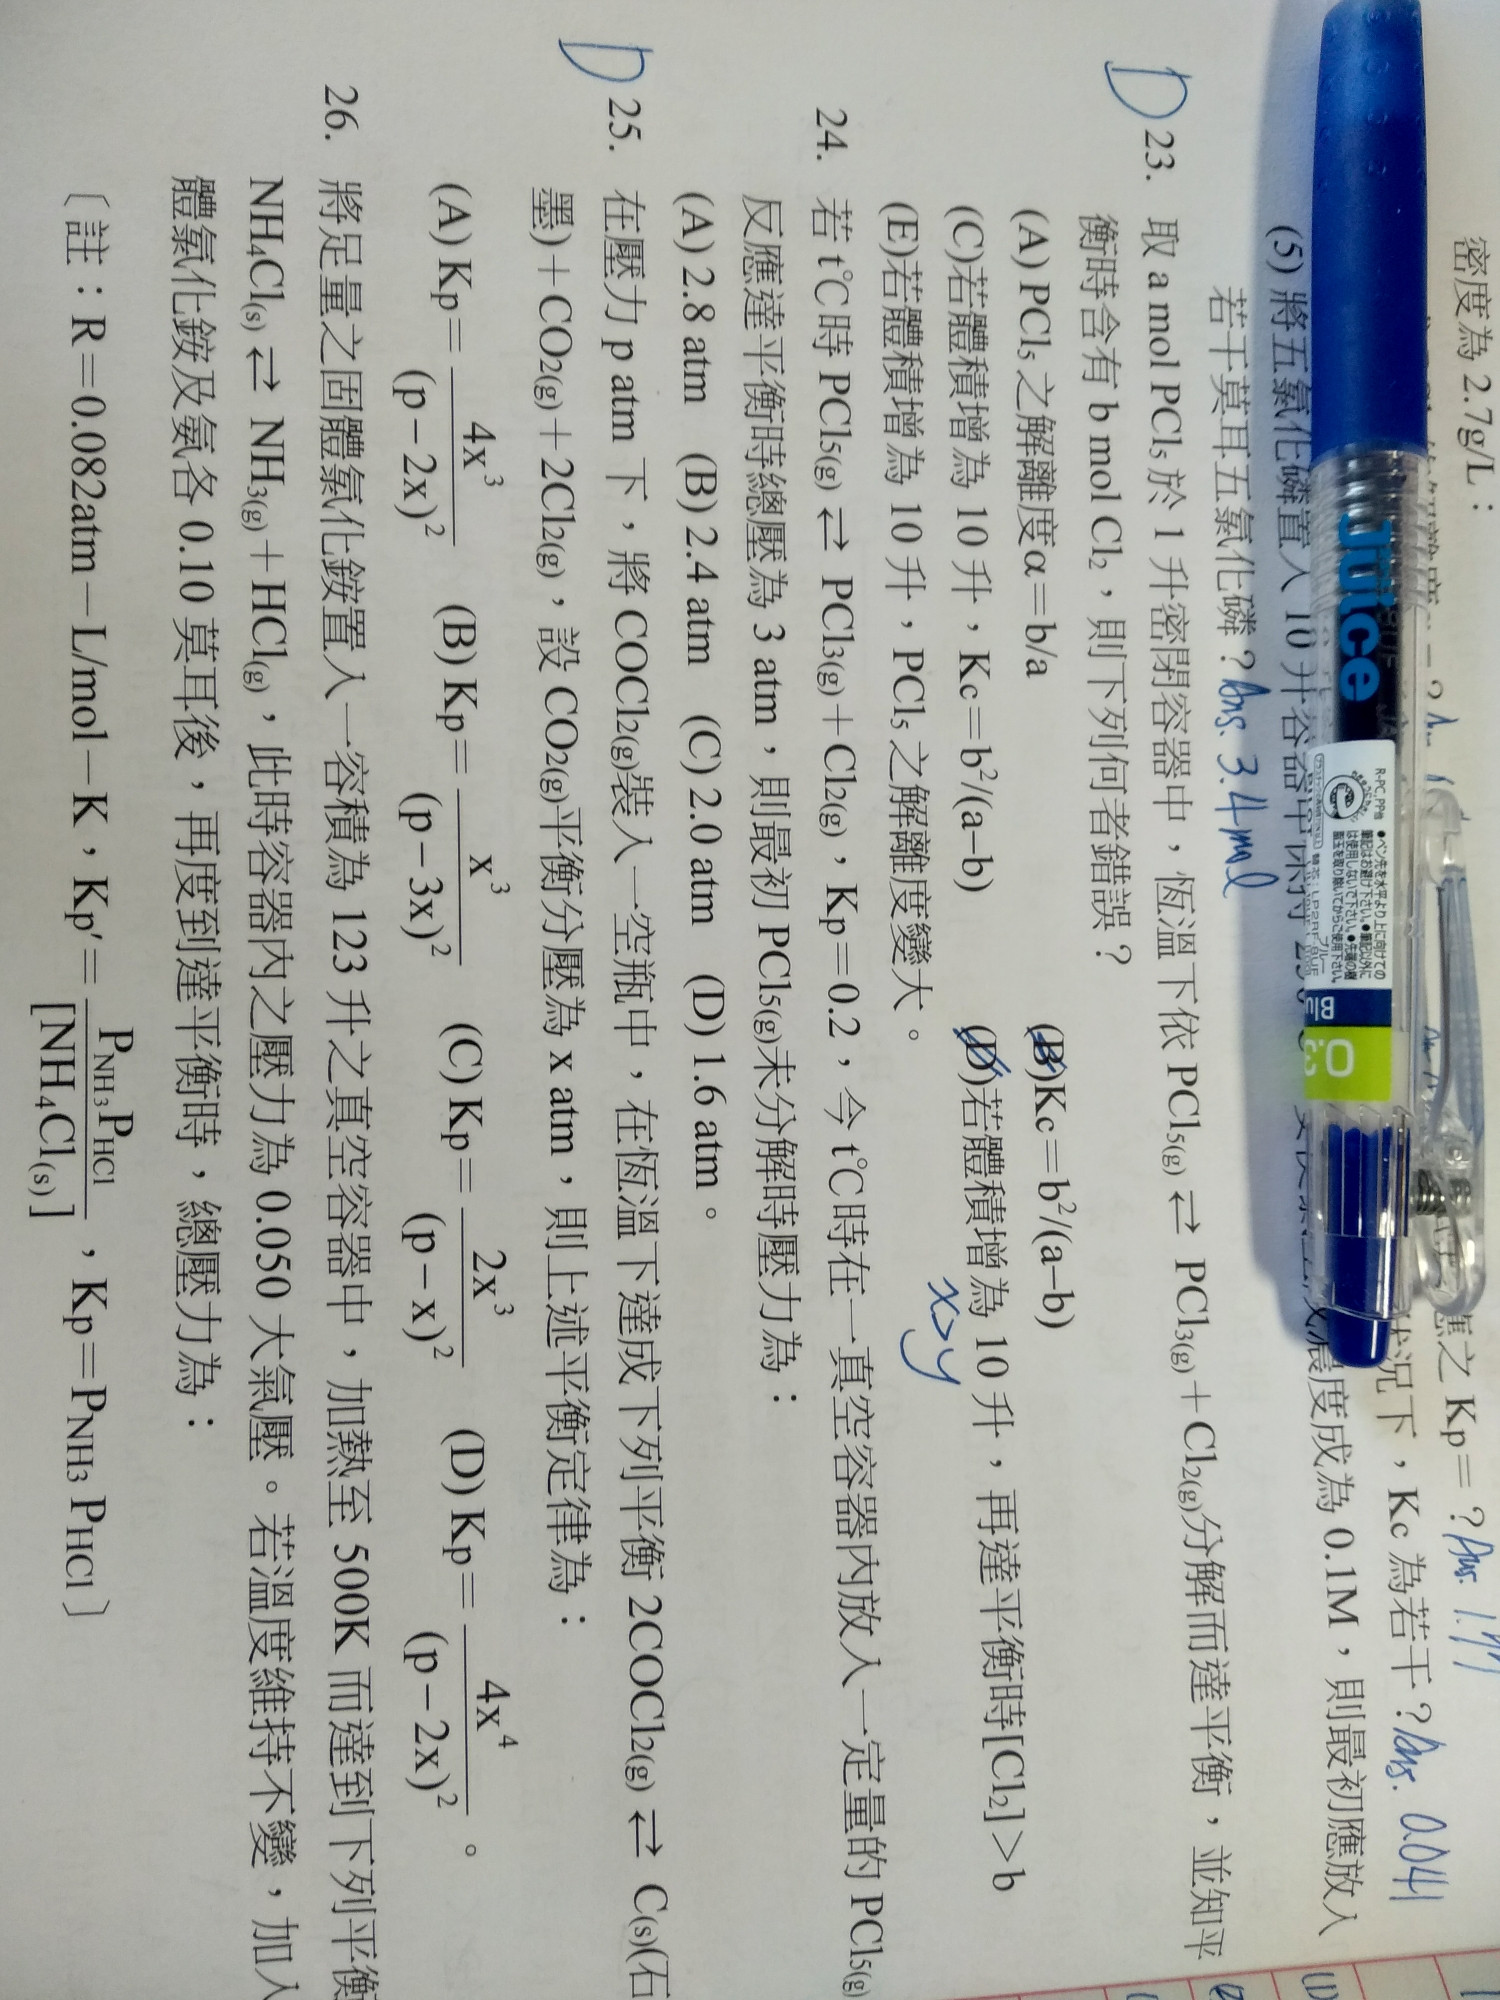 密度為 2.7g/L：
之 Kp＝？Ans. 1.
狀況下，Kc 為若干？Ans. 0.041
(5) 將五氯化磷置入 10 升容器中 濃度成為 0.1M，則最初應放入
若干莫耳五氯化磷？Ans. 3.4 mol
Juice
0.3
D 23. 取 a mol PCl₅ 於 1 升密閉容器中，恆溫下依 PCl₅(g) ⇄ PCl₃(g)＋Cl₂(g)分解而達平衡，並知平
衡時含有 b mol Cl₂，則下列何者錯誤？
(A) PCl₅ 之解離度α＝b/a (B)Kc＝b²/(a–b)
(C)若體積增為 10 升，Kc＝b²/(a–b) (D)若體積增為 10 升，再達平衡時[Cl₂]＞b
(E)若體積增為 10 升，PCl₅ 之解離度變大。 x>y
24. 若 t℃時 PCl₅(g) ⇄ PCl₃(g)＋Cl₂(g)，Kp＝0.2，今 t℃時在一真空容器內放入一定量的 PCl₅(g)
反應達平衡時總壓為 3 atm，則最初 PCl₅(g)未分解時壓力為：
(A) 2.8 atm (B) 2.4 atm (C) 2.0 atm (D) 1.6 atm。
D 25. 在壓力 p atm 下，將 COCl₂(g)裝入一空瓶中，在恆溫下達成下列平衡 2COCl₂(g) ⇄ C(s)(石
墨)＋CO₂(g)＋2Cl₂(g)，設 CO₂(g)平衡分壓為 x atm，則上述平衡定律為：
(A) Kp＝4x³/(p－2x)² (B) Kp＝x³/(p－3x)² (C) Kp＝2x³/(p－x)² (D) Kp＝4x⁴/(p－2x)²。
26. 將足量之固體氯化銨置入一容積為 123 升之真空容器中，加熱至 500K 而達到下列平衡
NH₄Cl(s) ⇄ NH₃(g)＋HCl(g)，此時容器內之壓力為 0.050 大氣壓。若溫度維持不變，加入
體氯化銨及氨各 0.10 莫耳後，再度到達平衡時，總壓力為：
〔註：R＝0.082atm－L/mol－K，Kp′＝P_NH₃P_HCl/[NH₄Cl(s)]，Kp＝P_NH₃ P_HCl〕